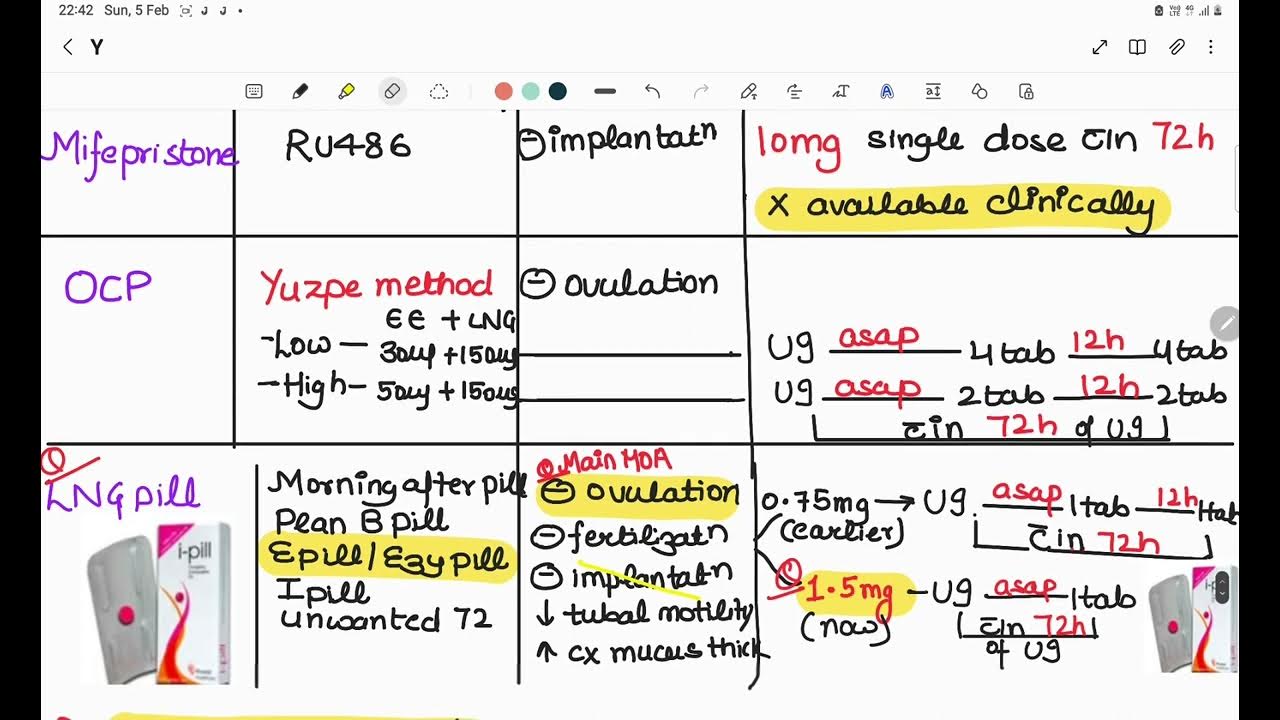 22:42 Sun, 5 Feb
Y
Mifepristone
RU486
⊖ implantatn
10mg single dose c̅in 72h
X available clinically
OCP
Yuzpe method
EE + LNG
-Low — 30ug + 150ug
-High- 50ug + 150ug
⊖ ovulation
U9 asap 4tab 12h 4tab
U9 asap 2tab 12h 2tab
c̅in 72h of U9
LNG pill
Morning after pill
Plan B pill
Epill/Ezy pill
Ipill
unwanted 72
Main MOA
⊖ ovulation
⊖ fertilizatn
⊖ implantatn
↓ tubal motility
↑ cx mucus thick
0.75mg → U9 asap 1tab 12h 1tab
(earlier)
c̅in 72h
1.5mg – U9 asap 1tab
(now)
c̅in 72h
of U9
i-pill